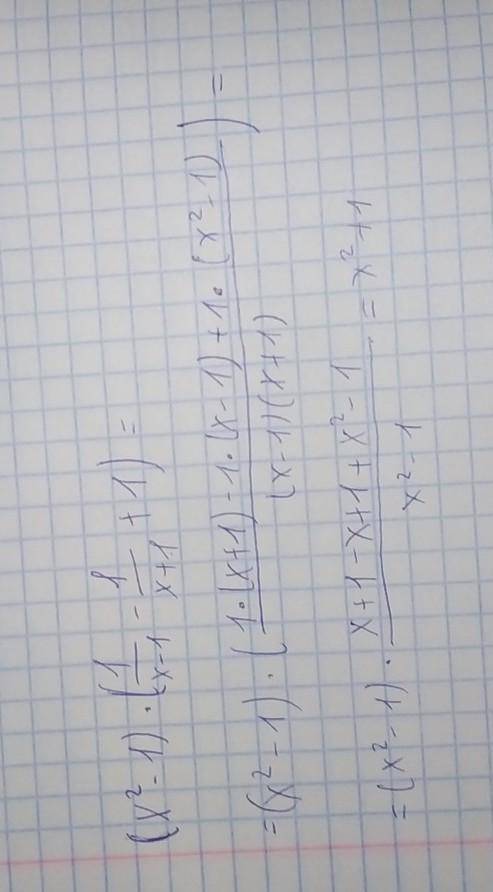 (x² - 1) · (1/(x-1) - 1/(x+1) + 1) =
= (x² - 1) · (1·(x+1) - 1·(x-1) + 1·(x² - 1)/(x-1)(x+1)) =
= (x² - 1) · x+1 - x+1 + x² - 1/x² - 1 = x² + 1